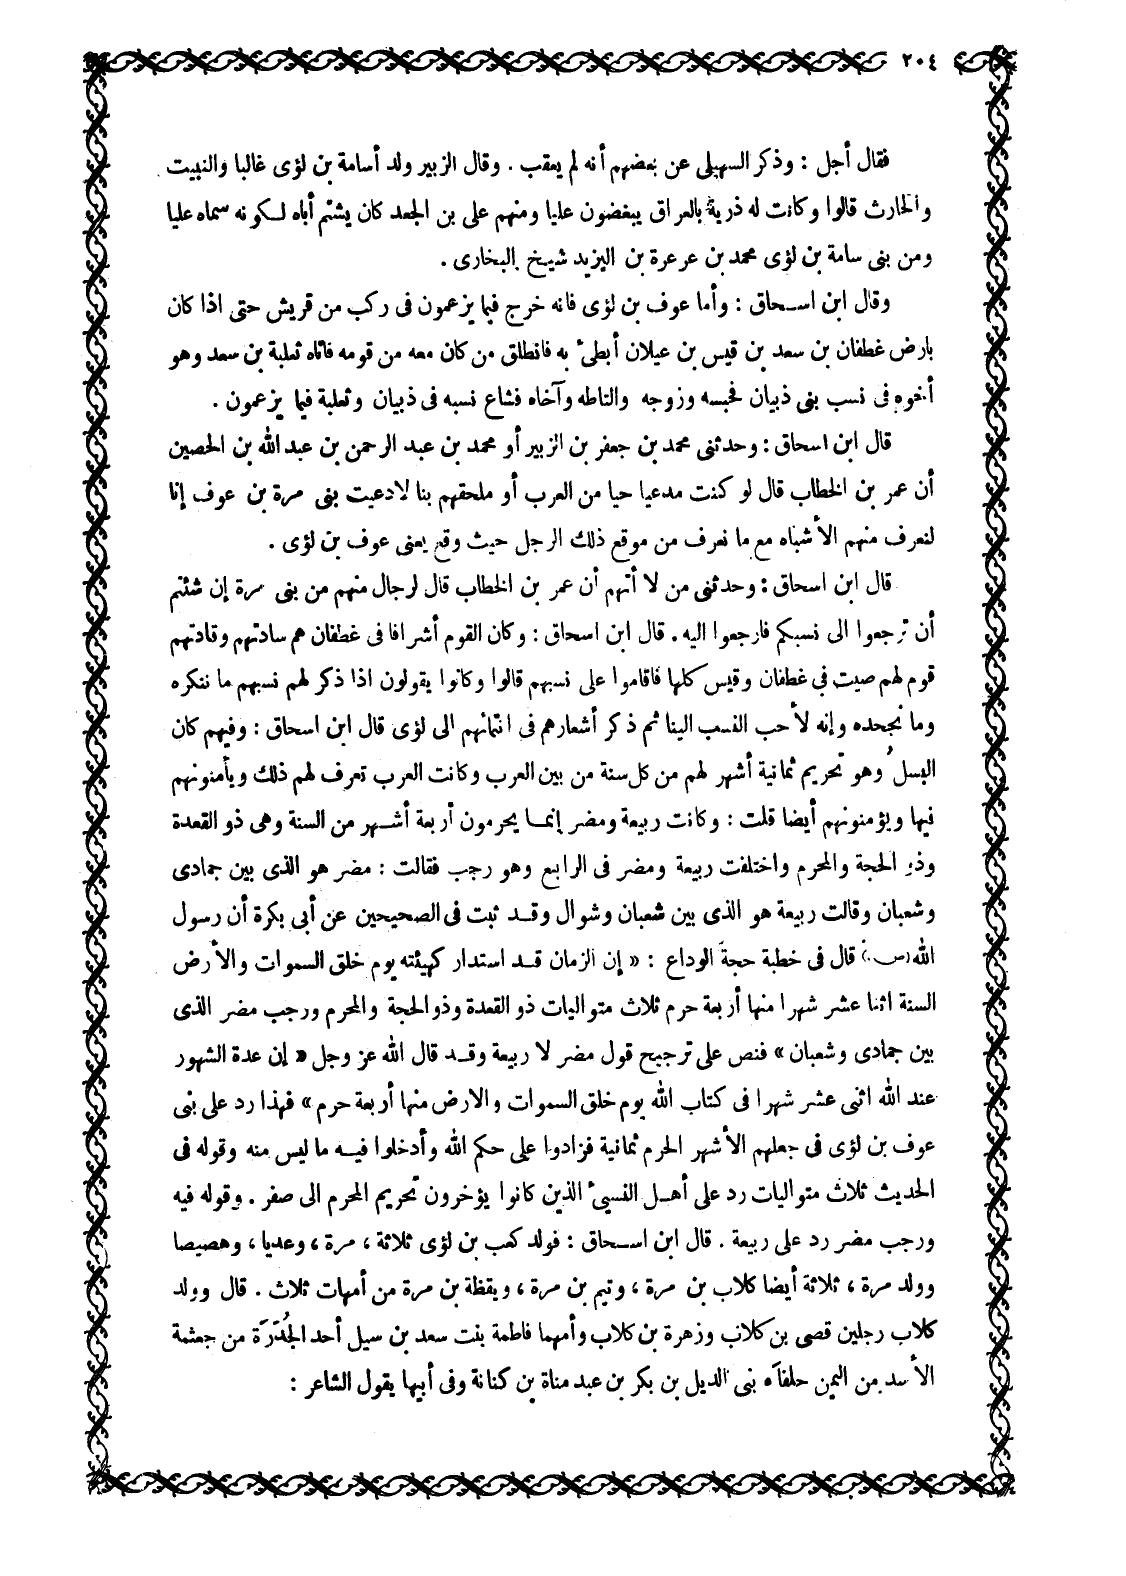 ٢٠٤
فقال أجل : وذكر السهيلى عن بعضهم أنه لم يعقب . وقال الزبير ولد أسامة بن لؤى غالبا والنبيت
والحارث قالوا وكانت له ذرية بالعراق يبغضون عليا ومنهم على بن الجعد كان يشتم أباه لكونه سماه عليا
ومن بنى سامة بن لؤى محمد بن عرعرة بن اليزيد شيخ البخارى .
وقال ابن اسحاق : وأما عوف بن لؤى فانه خرج فيما يزعمون فى ركب من قريش حتى اذا كان
بارض غطفان بن سعد بن قيس بن عيلان أبطىء به فانطلق من كان معه من قومه فاتاه ثعلبة بن سعد وهو
أخوه فى نسب بنى ذبيان فحبسه وزوجه والتاطه وآخاه فشاع نسبه فى ذبيان وثعلبة فيما يزعمون .
قال ابن اسحاق : وحدثنى محمد بن جعفر بن الزبير أو محمد بن عبد الرحمن بن عبد الله بن الحصين
أن عمر بن الخطاب قال لو كنت مدعيا حيا من العرب أو ملحقهم بنا لادعيت بنى مرة بن عوف إنا
لنعرف منهم الأشباه مع ما نعرف من موقع ذلك الرجل حيث وقع يعنى عوف بن لؤى .
قال ابن اسحاق : وحدثنى من لا أتهم أن عمر بن الخطاب قال لرجال منهم من بنى مرة إن شئتم
أن ترجعوا الى نسبكم فارجعوا اليه . قال ابن اسحاق : وكان القوم أشرافا فى غطفان هم سادتهم وقادتهم
قوم لهم صيت في غطفان وقيس كلها فاقاموا على نسبهم قالوا وكانوا يقولون اذا ذكر لهم نسبهم ما ننكره
وما نجحده وإنه لأحب النسب الينا ثم ذكر أشعارهم فى انتمائهم الى لؤى قال ابن اسحاق : وفيهم كان
البسلُ وهو تحريم ثمانية أشهر لهم من كل سنة من بين العرب وكانت العرب تعرف لهم ذلك ويأمنونهم
فيها ويؤمنونهم أيضا قلت : وكانت ربيعة ومضر إنما يحرمون أربعة أشهر من السنة وهى ذو القعدة
وذو الحجة والمحرم واختلفت ربيعة ومضر فى الرابع وهو رجب فقالت : مضر هو الذى بين جمادى
وشعبان وقالت ربيعة هو الذى بين شعبان وشوال وقد ثبت فى الصحيحين عن أبى بكرة أن رسول
الله (ص.) قال فى خطبة حجة الوداع : « إن الزمان قد استدار كهيئته يوم خلق السموات والأرض
السنة اثنا عشر شهرا منها أربعة حرم ثلاث متواليات ذو القعدة وذو الحجة والمحرم ورجب مضر الذى
بين جمادى وشعبان » فنص على ترجيح قول مضر لا ربيعة وقد قال الله عز وجل « إن عدة الشهور
عند الله اثنى عشر شهرا فى كتاب الله يوم خلق السموات والارض منها أربعة حرم » فهذا رد على بنى
عوف بن لؤى فى جعلهم الأشهر الحرم ثمانية فزادوا على حكم الله وأدخلوا فيه ما ليس منه وقوله فى
الحديث ثلاث متواليات رد على أهل النسىء الذين كانوا يؤخرون تحريم المحرم الى صفر . وقوله فيه
ورجب مضر رد على ربيعة . قال ابن اسحاق : فولد كعب بن لؤى ثلاثة ، مرة ، وعديا ، وهصيصا
وولد مرة ، ثلاثة أيضا كلاب بن مرة ، وتيم بن مرة ، ويقظة بن مرة من أمهات ثلاث . قال وولد
كلاب رجلين قصى بن كلاب وزهرة بن كلاب وأمهما فاطمة بنت سعد بن سيل أحد الجُدَرَة من جعثمة
الأسد من اليمن حلفاء بنى الديل بن بكر بن عبد مناة بن كنانة وفى أبيها يقول الشاعر :